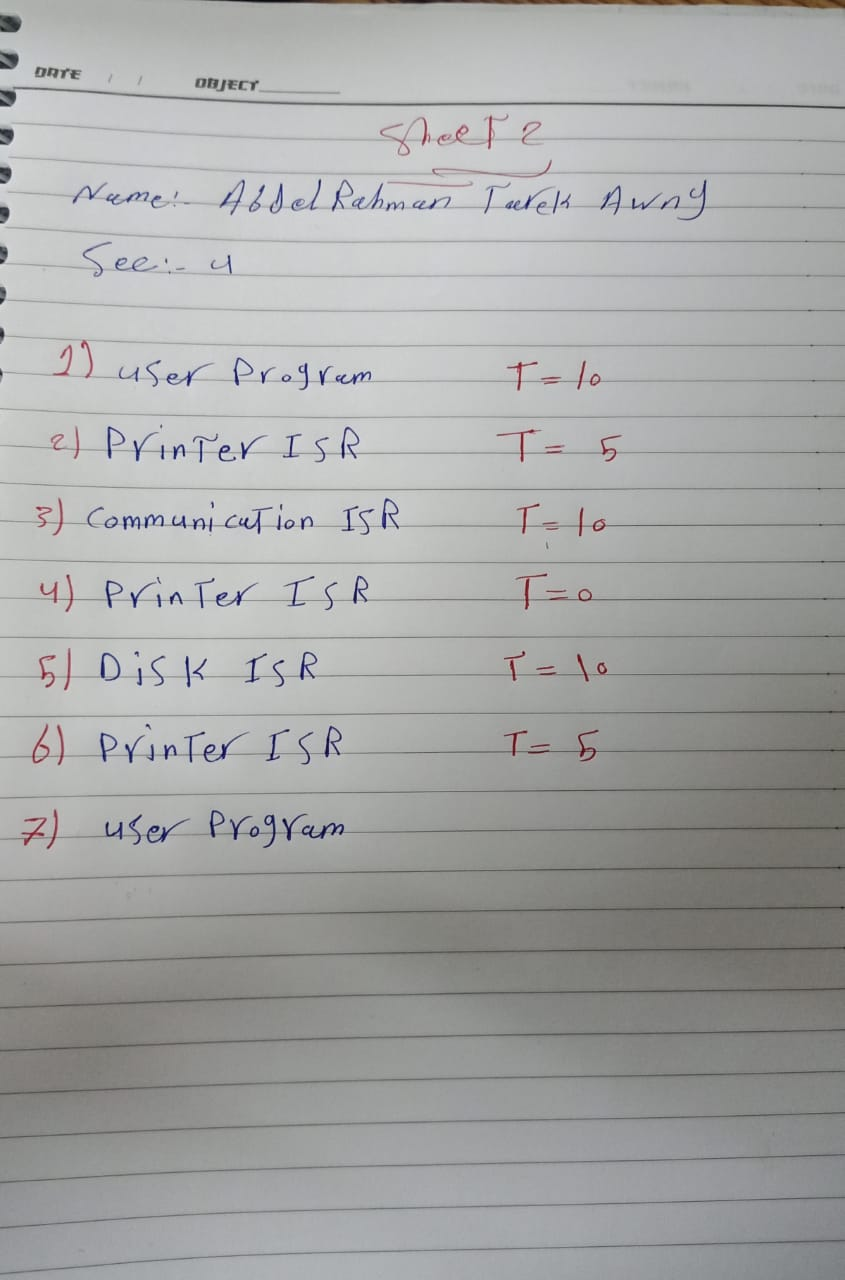 DATE / / OBJECT
Sheet 2
Name:- AbdelRahman Tarek Awny
Sec:- 4
1) user Program T = 10
2) Printer ISR T = 5
3) Communication ISR T = 10
4) Printer ISR T = 0
5) Disk ISR T = 10
6) Printer ISR T = 5
7) user Program